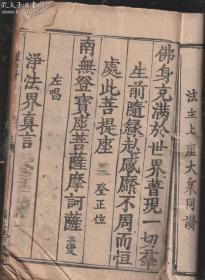 法主上座大衆同讚
佛身充滿於世界普現一切羣
生前隨緣赴感靡不周而恒
處此菩提座 登正位
南無登寶座菩薩摩訶薩
左唱
淨法界真言